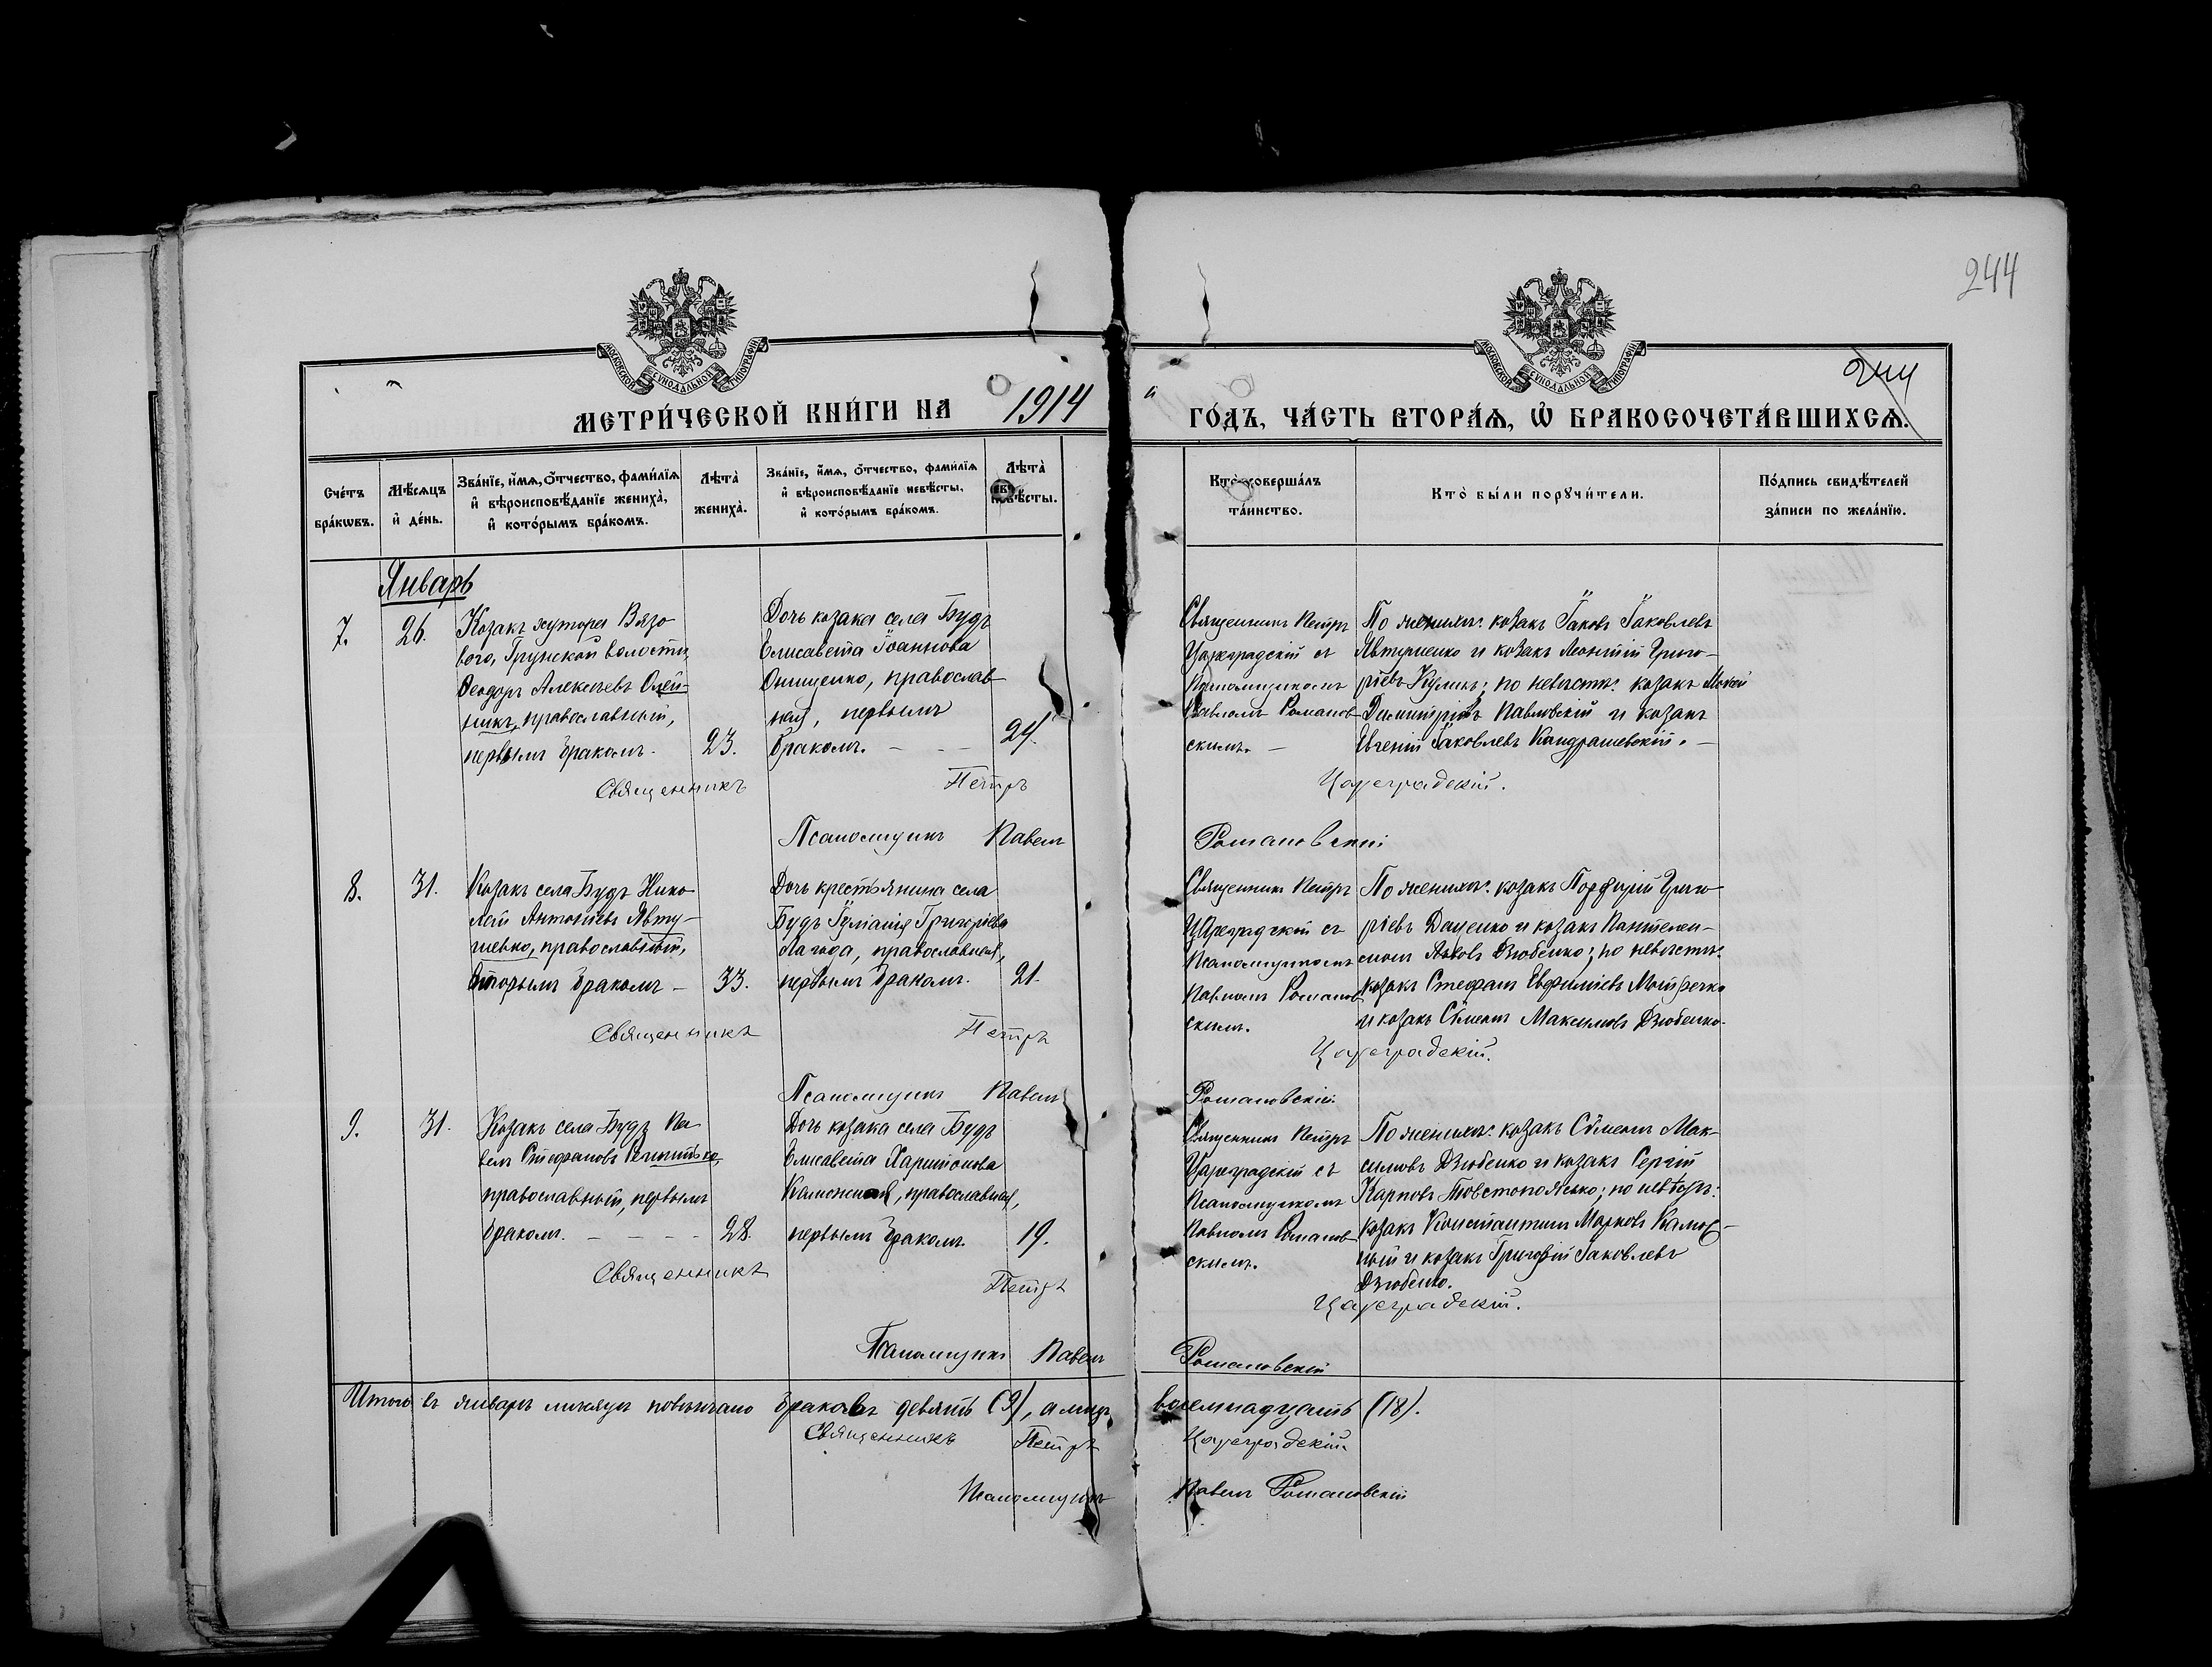 244
244
МОСКОВСКОЙ СУНОДАЛЬНОЙ ТИПОГРАФІИ
МОСКОВСКОЙ СУНОДАЛЬНОЙ ТИПОГРАФІИ
МЕТРИ́ЧЕСКОЙ КНИ́ГИ НА 1914
ГО́ДЪ, ЧА́СТЬ ВТОРА́Я, Ѡ҆ БРАКОСОЧЕТА́ВШИХСЯ.
Сче́тъ
бра́кѡвъ.
Мѣ́сяцъ
и҆ де́нь.
Зва́нїе, и҆́мя, ѻ҆́тчество, фами́лїя
и҆ вѣроисповѣ́данїе жениха̀,
и҆ кото́рымъ бра́комъ.
Лѣта̀
жениха̀.
Зва́нїе, и҆́мя, ѻ҆́тчество, фами́лїя
и҆ вѣроисповѣ́данїе невѣ́сты,
и҆ кото́рымъ бра́комъ.
Лѣта̀
невѣ́сты.
Кто̀ соверша́лъ
та́инство.
Кто̀ бы́ли порꙋчи́тели.
По́дпись свидѣ́телей
за́писи по жела́нїю.
Январь
7.
26.
Козакъ хутора Вязо-
вого, Грунской волости,
Ѳеодоръ Алексѣевъ Олей-
никъ, православный,
первымъ бракомъ.
23.
Дочь козака села Будъ
Елисавета Іоаннова
Онищенко, православ-
ная, первымъ
бракомъ. – – –
24.
Священникъ Петръ
Цареградскій съ
Псаломщикомъ
Павломъ Романов-
скимъ. –
По женихѣ: козакъ Іаковъ Іаковлевъ
Явтушенко и козакъ Леонтій Григо-
ріевъ Куликъ; по невѣстѣ: козакъ Мокей
Димитріевъ Павловскій и козакъ
Евгеній Іаковлевъ Кандрашевскій. –
Священникъ Петръ Цареградскій.
Псаломщикъ Павелъ Романовскій
8.
31.
Козакъ села Будъ Нико-
лай Антоніевъ Явту-
шенко, православный,
вторымъ бракомъ –
33.
Дочь крестьянина села
Будъ Іуліанія Григоріева
Лагода, православная,
первымъ бракомъ.
21.
Священникъ Петръ
Цареградскій съ
Псаломщикомъ
Павломъ Романов-
скимъ.
По женихѣ: козакъ Порфирій Григо-
ріевъ Даценко и козакъ Пантелеи-
монъ Дзюбенко; по невѣстѣ:
козакъ Стефанъ Евфиміевъ
и козакъ Сѵмеонъ Максимовъ Дзюбенко.
Священникъ Петръ Цареградскій.
Псаломщикъ Павелъ Романовскій
9.
31.
Козакъ села Будъ Па-
велъ Стефановъ
православный, первымъ
бракомъ. – – – –
28.
Дочь козака села Будъ
Елисавета Харитонова
православная,
первымъ бракомъ.
19.
Священникъ Петръ
Цареградскій съ
Псаломщикомъ
Павломъ Романов-
скимъ.
По женихѣ: козакъ Сѵмеонъ Мак-
симовъ Дзюбенко и козакъ Сергій
Карповъ Товстопятько; по невѣстѣ:
козакъ Константинъ Марковъ
и козакъ Григорій Іаковлевъ
Дзюбенко.
Священникъ Петръ Цареградскій.
Псаломщикъ Павелъ Романовскій
Итого въ январѣ мѣсяцѣ повѣнчано браковъ девять (9), а лицъ восемнадцать (18).
Священникъ Петръ Цареградскій
Псаломщикъ Павелъ Романовскій